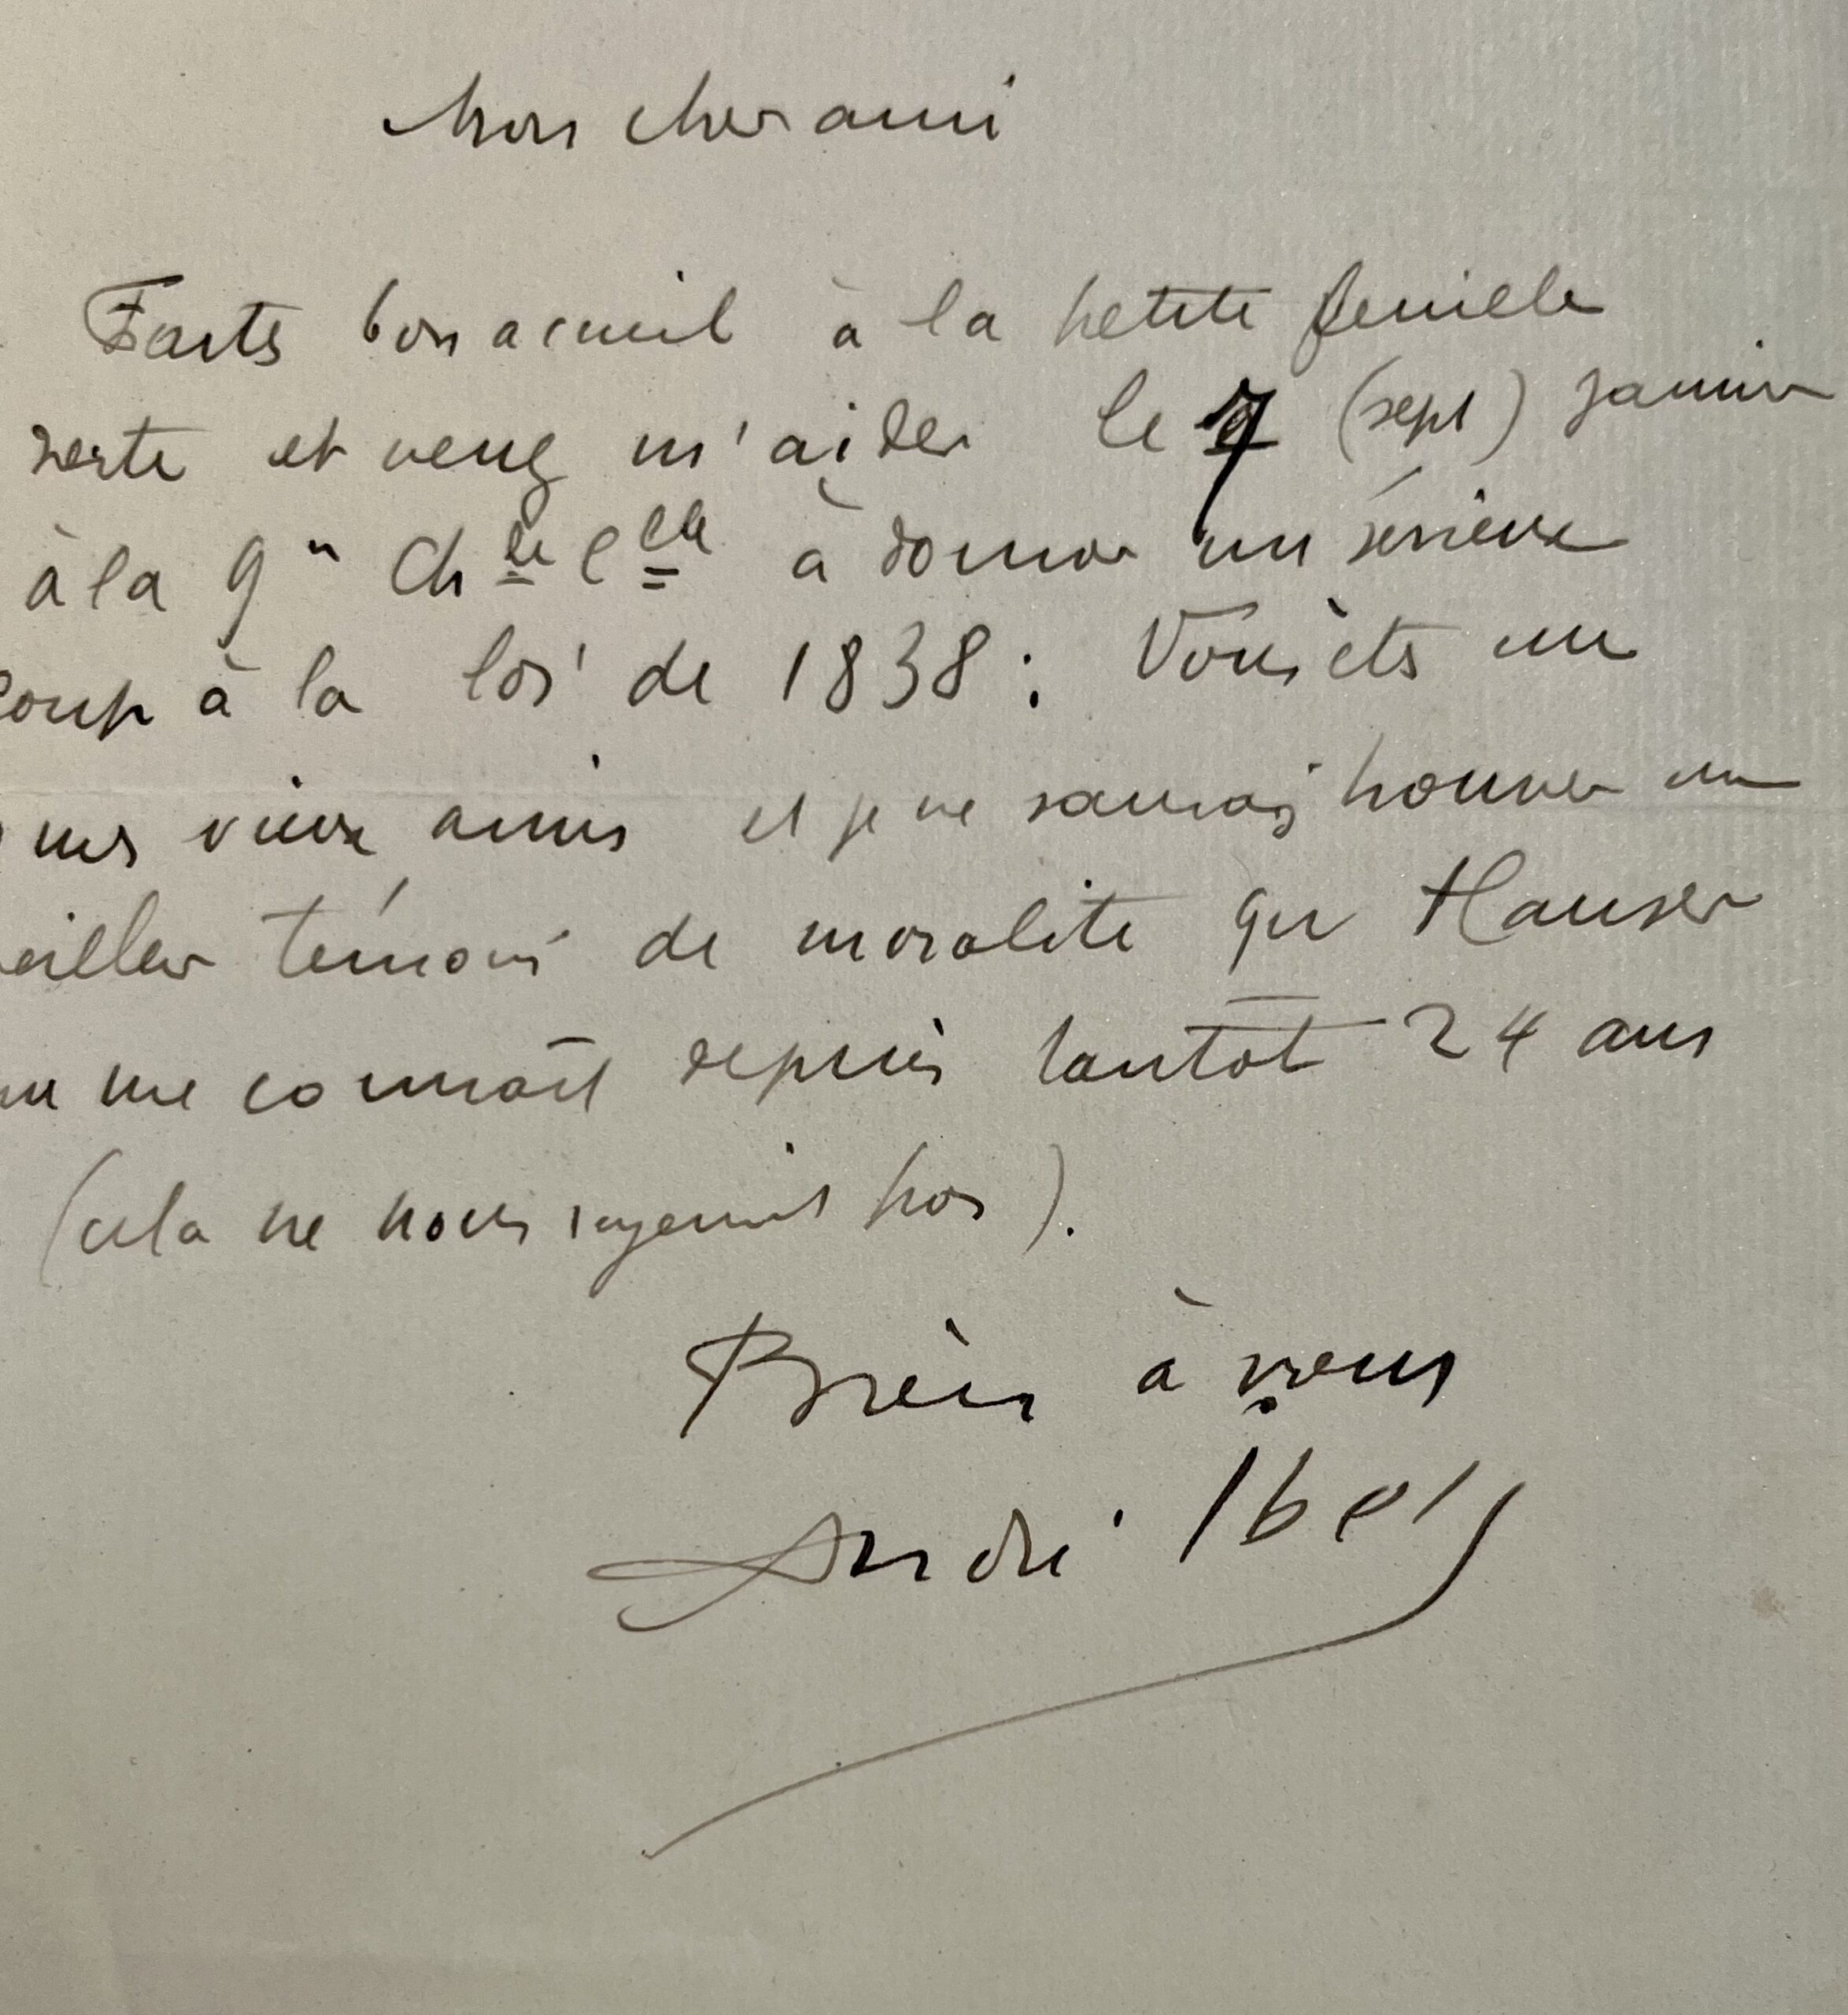 Mon cher ami
Faites bon accueil à la petite feuille
verte et venez m'aider le 7 (sept) janvier
à la 9e Chbre Clle à donner un sérieux
coup à la loi de 1838 : Vous êtes un
mes vieux amis et je ne saurais trouver un
meilleur témoin de moralité qu Hauser
me connaît depuis tantôt 24 ans
(cela ne nous rajeunit pas).
Bien à vous
André Ibels